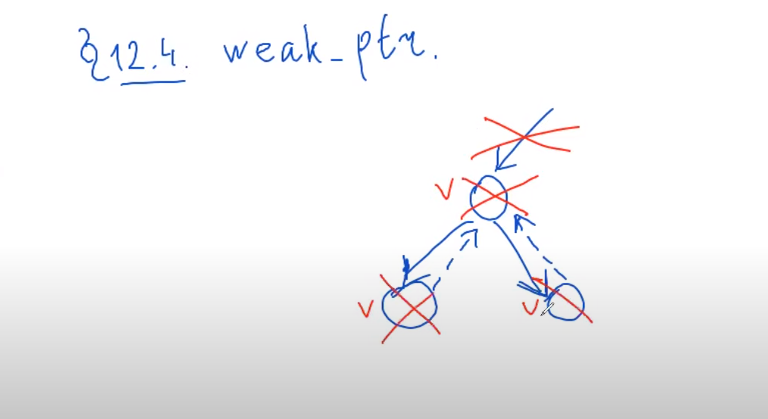 §12.4. weak_ptr.
v
v
v